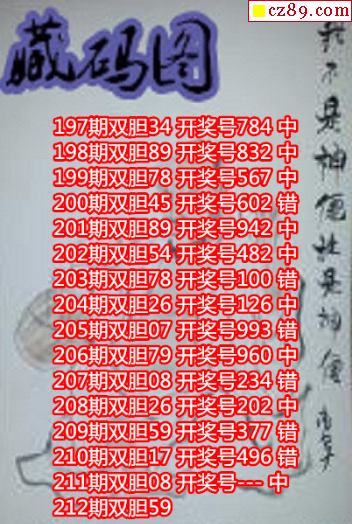 cz89.com
藏码图
197期双胆34 开奖号784 中
198期双胆89 开奖号832 中
199期双胆78 开奖号567 中
200期双胆45 开奖号602 错
201期双胆89 开奖号942 中
202期双胆54 开奖号482 中
203期双胆78 开奖号100 错
204期双胆26 开奖号126 中
205期双胆07 开奖号993 错
206期双胆79 开奖号960 中
207期双胆08 开奖号234 错
208期双胆26 开奖号202 中
209期双胆59 开奖号377 错
210期双胆17 开奖号496 错
211期双胆08 开奖号--- 中
212期双胆59
我不是神僧